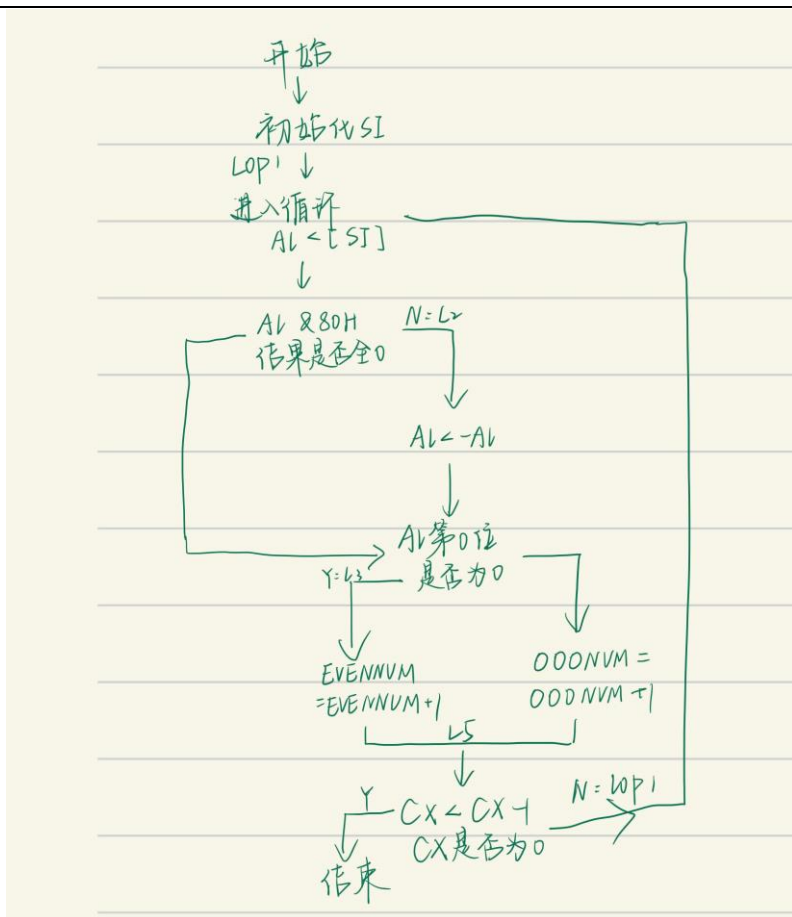 开始
初始化SI
LOP1
进入循环
AL<[SI]
AL &80H
结果是否全0
N:L2
AL<-AL
AL第0位
是否为0
Y:L3
EVENNUM
=EVENNUM+1
ODDNUM=
ODDNUM+1
L5
Y
CX<CX-1
CX是否为0
N:LOP1
结束